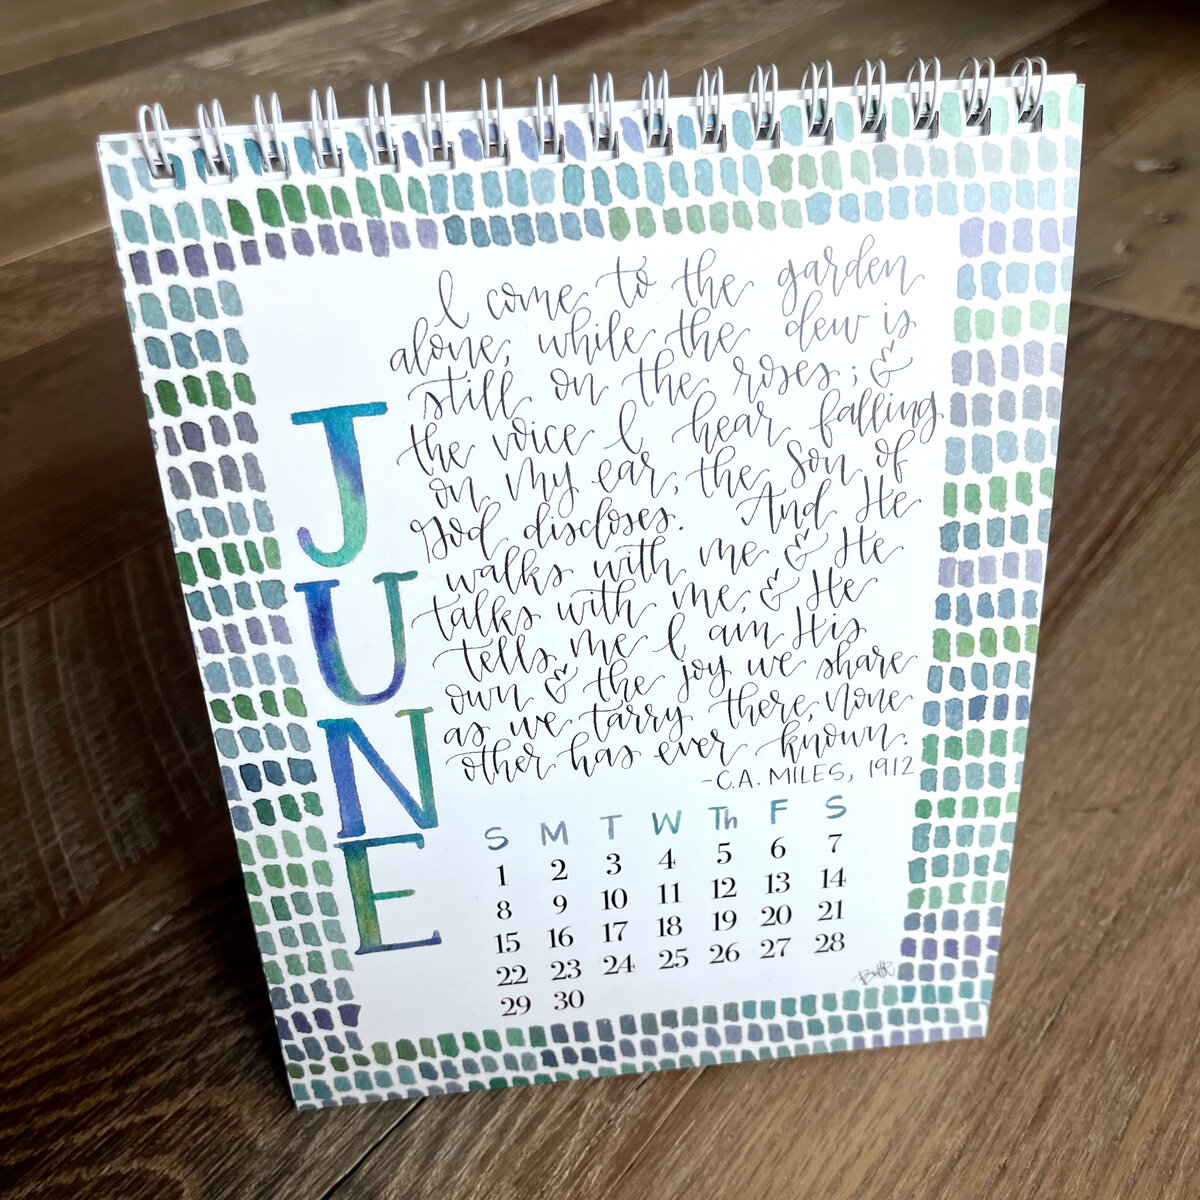 I come to the garden
alone, while the dew is
still on the roses; &
the voice I hear falling
on my ear, the Son of
God discloses. And He
walks with me & He
talks with me, & He
tells me I am His
own & the joy we share
as we tarry there, none
other has ever known.
-C.A. MILES, 1912
JUNE
S M T W Th F S
1 2 3 4 5 6 7
8 9 10 11 12 13 14
15 16 17 18 19 20 21
22 23 24 25 26 27 28
29 30